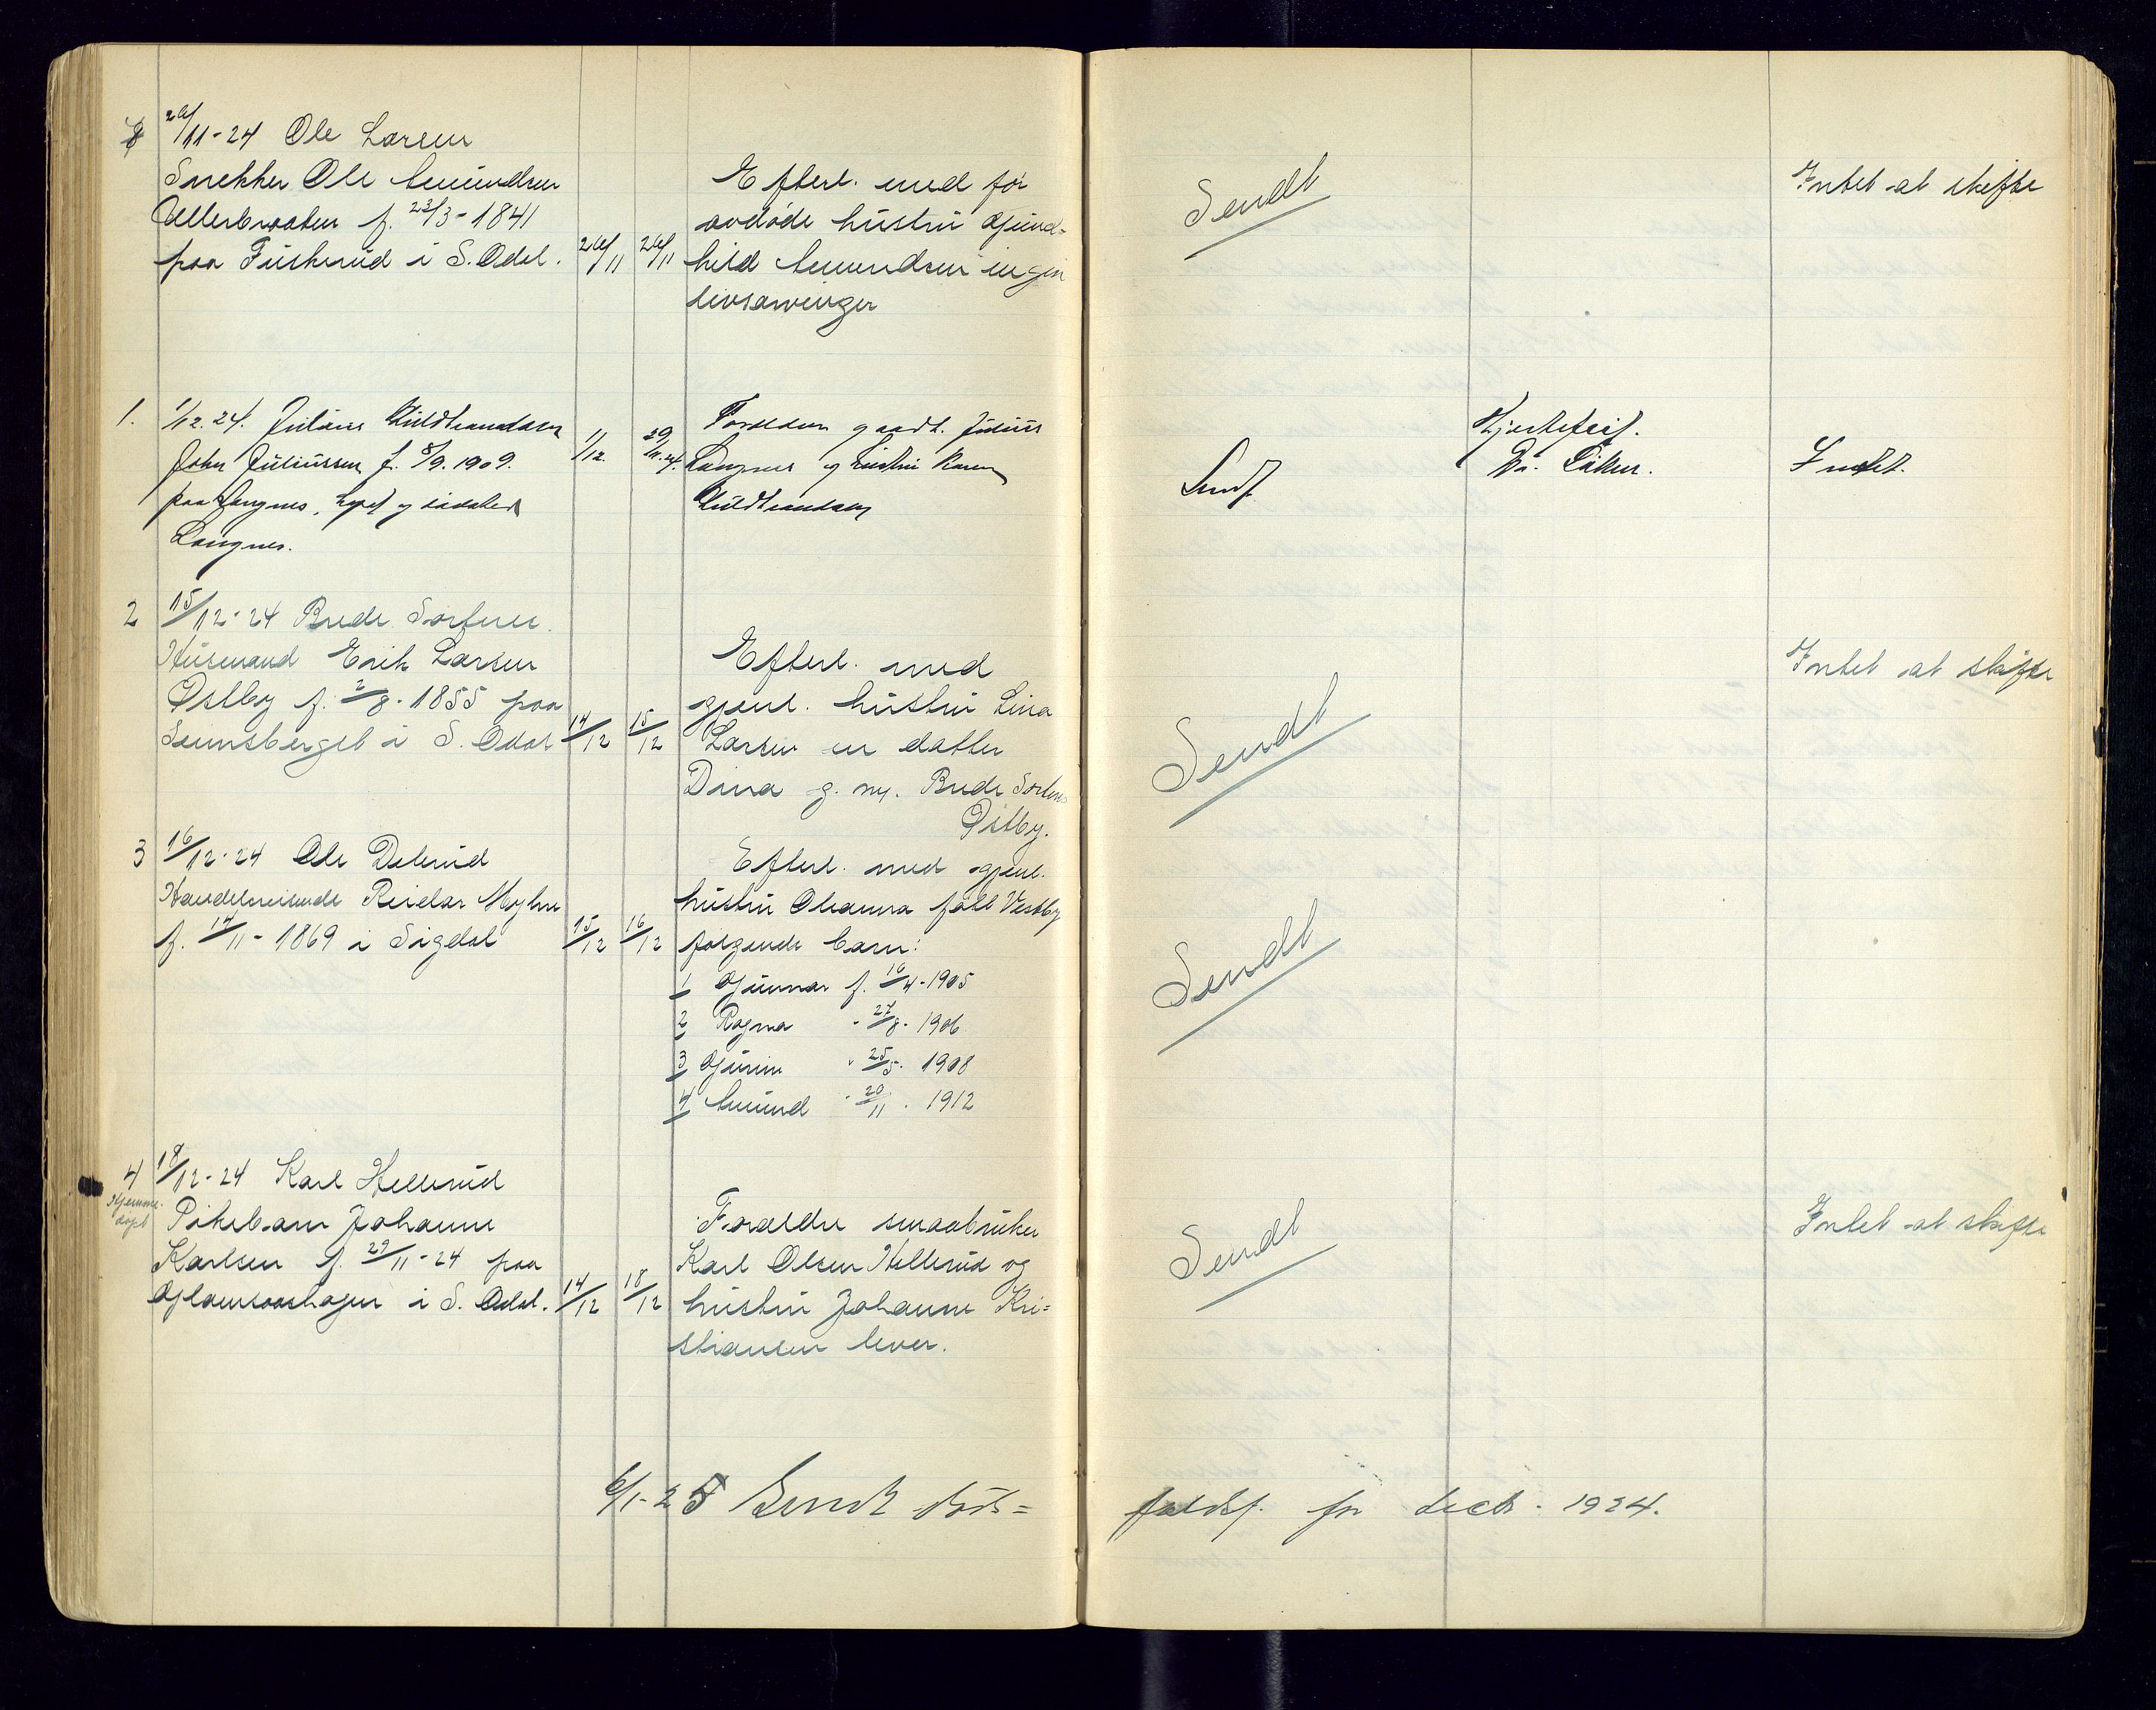 8 26/11-24 Ole Larsen
Snekker Ole Amundsen
Ullerbraaten f. 23/3-1841
paa Fuskerud i S. Odal. 26/11 26/11
Efterl. med før
avdøde hustru Gund=
hild Amundsen ingen
livsarvinger
Sendt
Intet at skifte
1. 1/12.24. Julius Guldbrandsen
John Juliussen f. 8/9.1909.
paa Langnes, og
Langnes.
1/12. 29/11.24.
Forældre gaardb. Julius
Langnes og hustru Karen
Guldbrandsen
Sendt
Hjertefeil.
Dr.
Intet.
2 15/12-24 Brede Sorknes
Husmand Erik Larsen
Østby f. 2/8-1855 paa
Linnsberget i S. Odal 14/12 15/12
Efterl. med
gjenl. hustru Lina
Larsen en datter
Dina g. m. Brede Sorknes
Østby.
Sendt
Intet at skifte
3 16/12-24 Ole Dalerud
Handelsreisende Reidar Myhre
f. 14/11-1869 i Sigdal 15/12 16/12
Efterl. med gjenl.
hustru Oleanna født Vestby
følgende barn:
1 Gunnar f. 16/4-1905
2 Ragna - 27/8-1906
3 Guren " 25/5-1908
4 Amund - 20/11-1912
Sendt
4 18/12-24 Karl Hellerud
Hjemme-
døpt
Pikebarn Johanne
Karlsen f. 29/11-24 paa
Glamsaashagen i S. Odal. 14/12 18/12
Forældre smaabruker
Karl Olsen Hellerud og
hustru Johanne Kri=
stiansen lever.
Sendt
Intet at skifte
6/1-25 Sendt døds=
faldsf. for decbr. 1924.